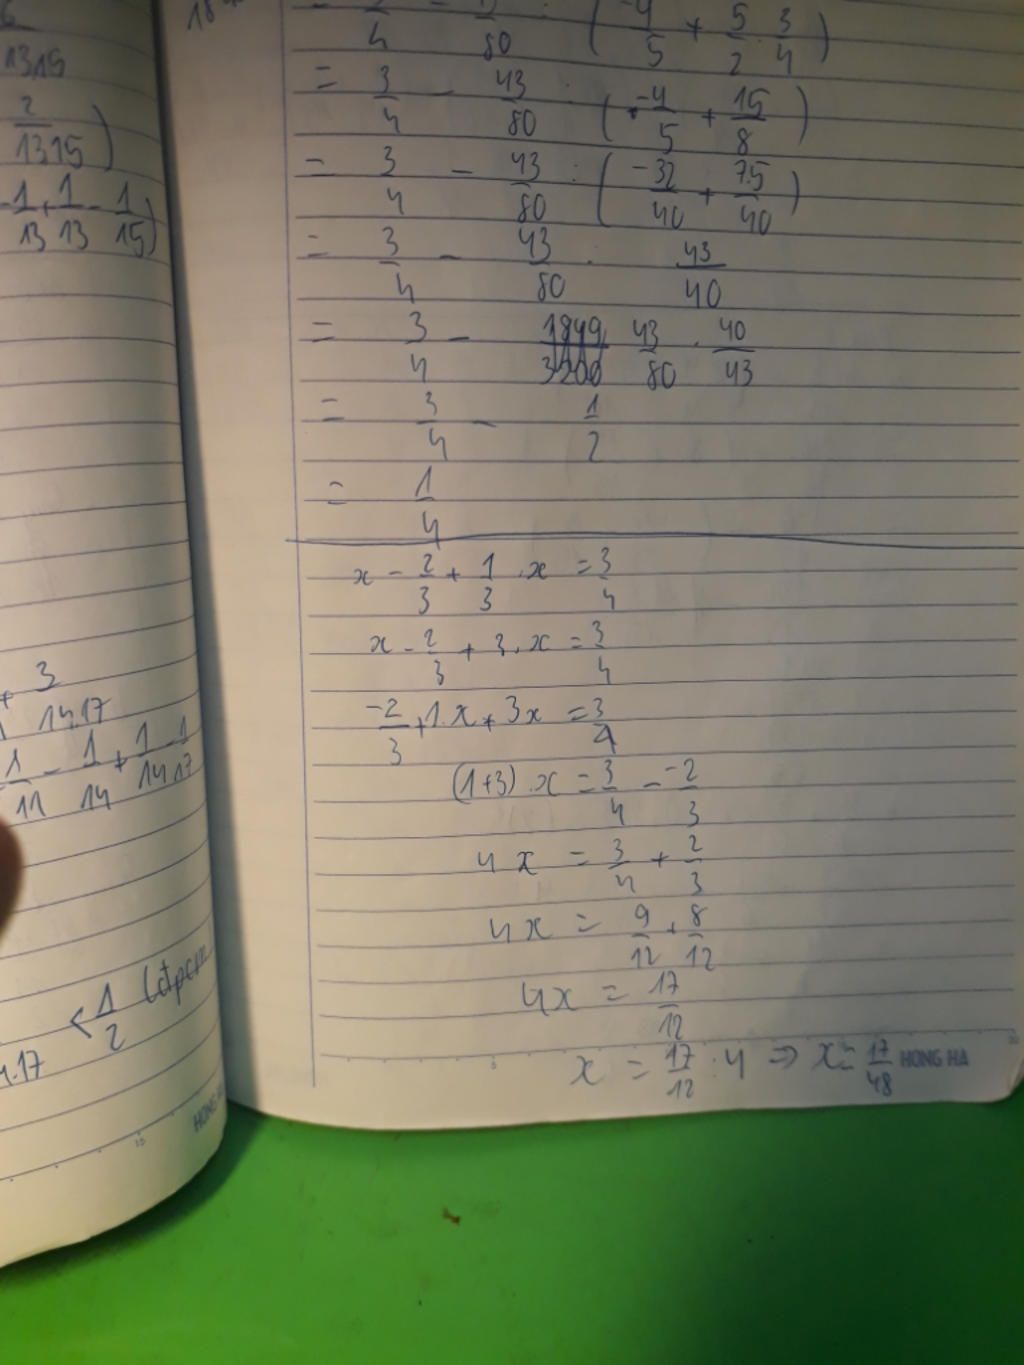 13.15
2/13.15)
-1/13+1/13-1/15)
+ 3/14.17
1/11 - 1/14 + 1/14 - 1/17
< 1/2 (đpcm
.17
HONG HA
3/4 - 43/80 : (-4/5 + 5/2 . 3/4)
= 3/4 - 43/80 : (-4/5 + 15/8)
= 3/4 - 43/80 : (-32/40 + 75/40)
= 3/4 - 43/80 : 43/40
= 3/4 - 43/80 . 40/43
= 3/4 - 1/2
= 1/4
x - 2/3 + 1/3 . x = 3/4
x - 2/3 + 3 . x = 3/4
-2/3 + 1.x + 3x = 3/4
(1+3) . x = 3/4 - -2/3
4x = 3/4 + 2/3
4x = 9/12 + 8/12
4x = 17/12
x = 17/12 : 4 => x = 17/48 HONG HA